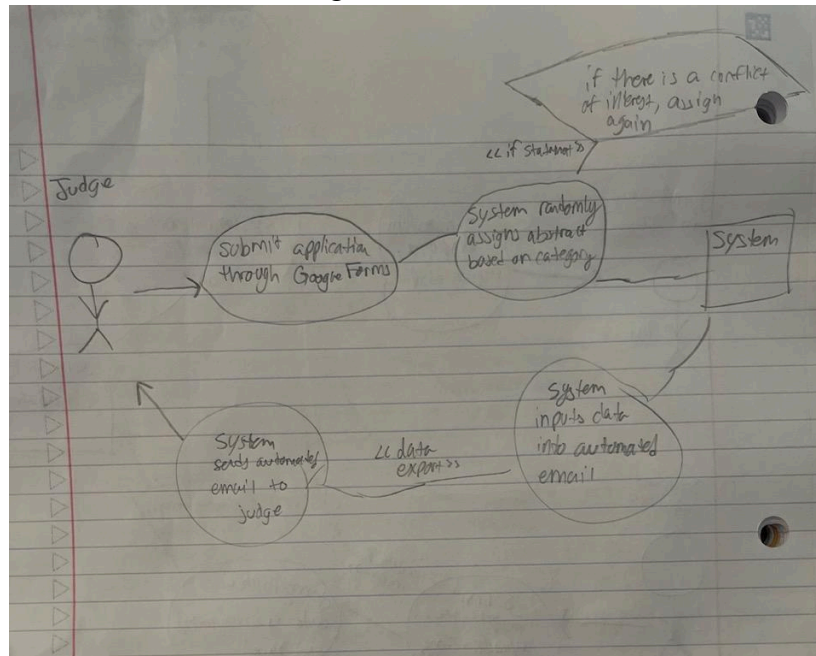 if there is a conflict
of interest, assign
again
<<if statement>>
Judge
submit application
through Google Forms
System randomly
assigns abstract
based on category
System
System
inputs data
into automated
email
<<data
export>>
System
sends automated
email to
judge